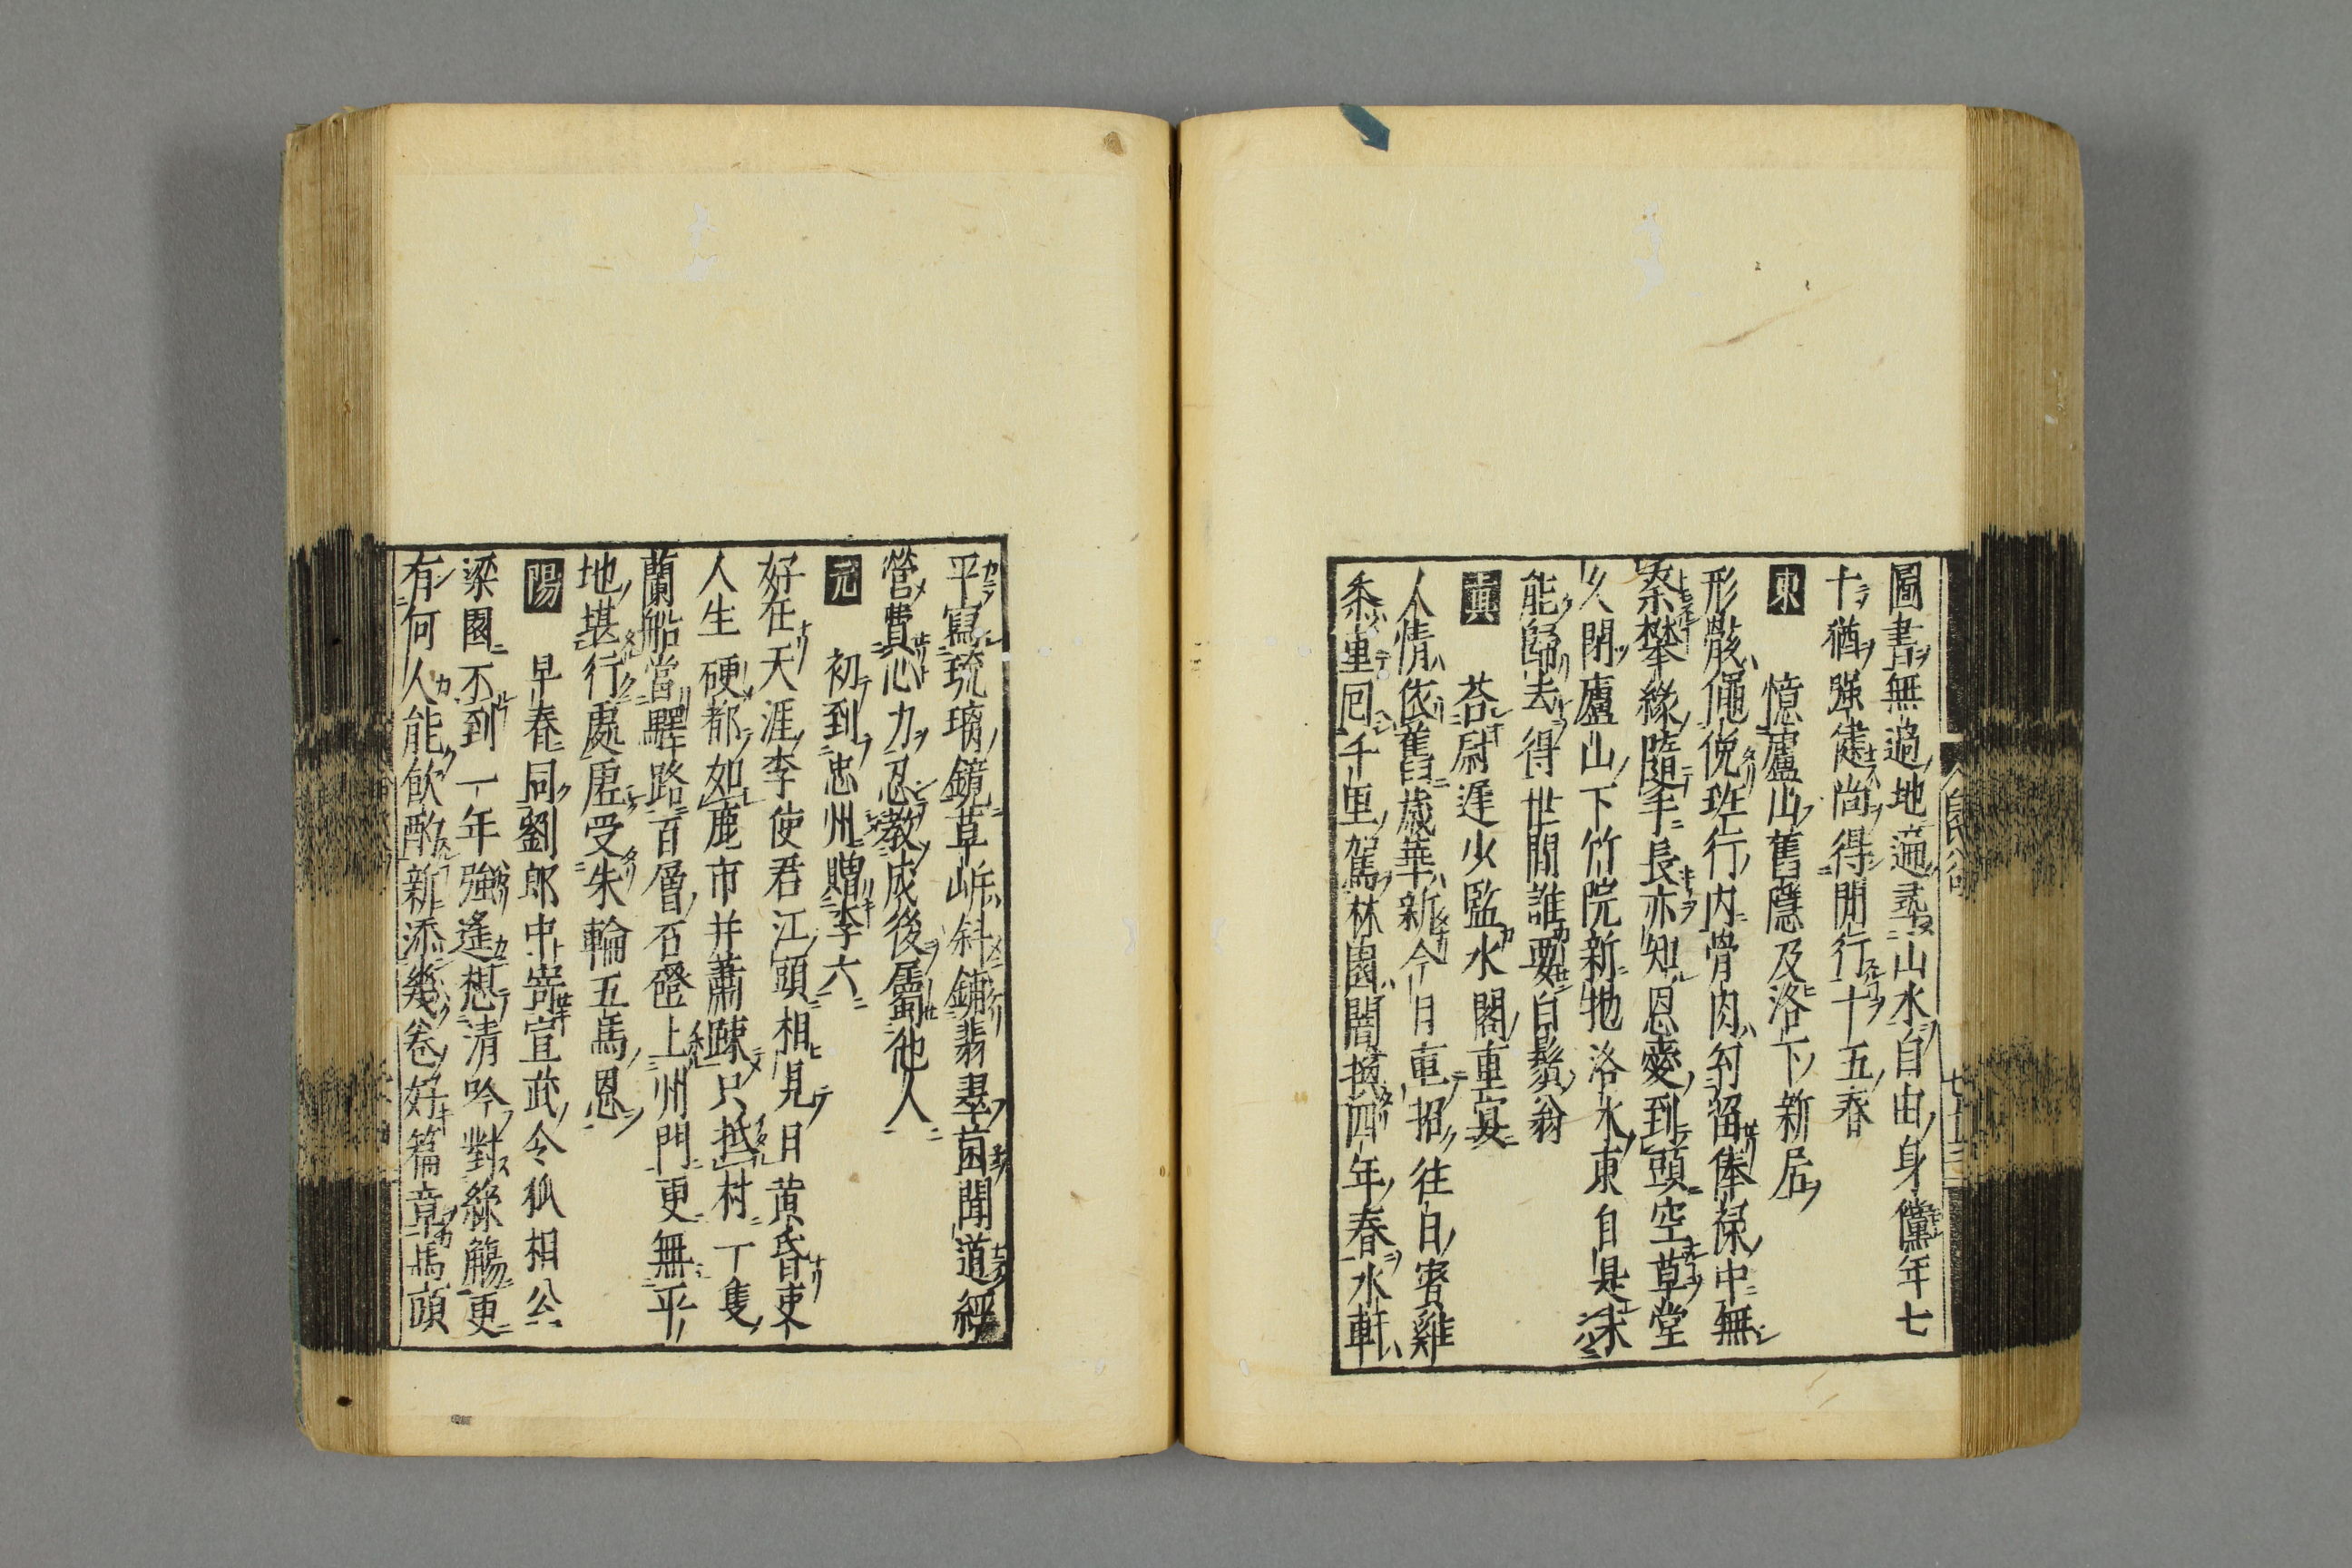 圖書無過地遍尋山水自由身儻年七
十猶強健尚得閒行十五春
東　憶廬山舊隱及洛下新居
形骸僶俛班行内骨肉勾留俸祿中無
奈攀緣隨手長亦知恩愛到頭空草堂
久閉廬山下竹院新牠洛水東自是未
能歸去得世間誰要白鬚翁
真　荅尉遲少監水閣重宴
人情依舊歳華新今日重招往日賔雞
黍重囘千里駕林園闇換四年春水軒
平寫琉璃鏡草岸斜鋪翡翠茵聞道經
營費心力忍教成後屬他人
元　初到忠州贈李六
好在天涯李使君江頭相見日黄昏吏
人生硬都如鹿市井蕭踈只抵村一隻
蘭船當驛路百層石磴上州門更無平
地堪行處虚受朱輪五馬恩
陽　早春同劉郎中寄宣武令狐相公
梁園不到一年強遥想清吟對綠觴更
有何人能飲酌新添幾卷好篇章馬頭